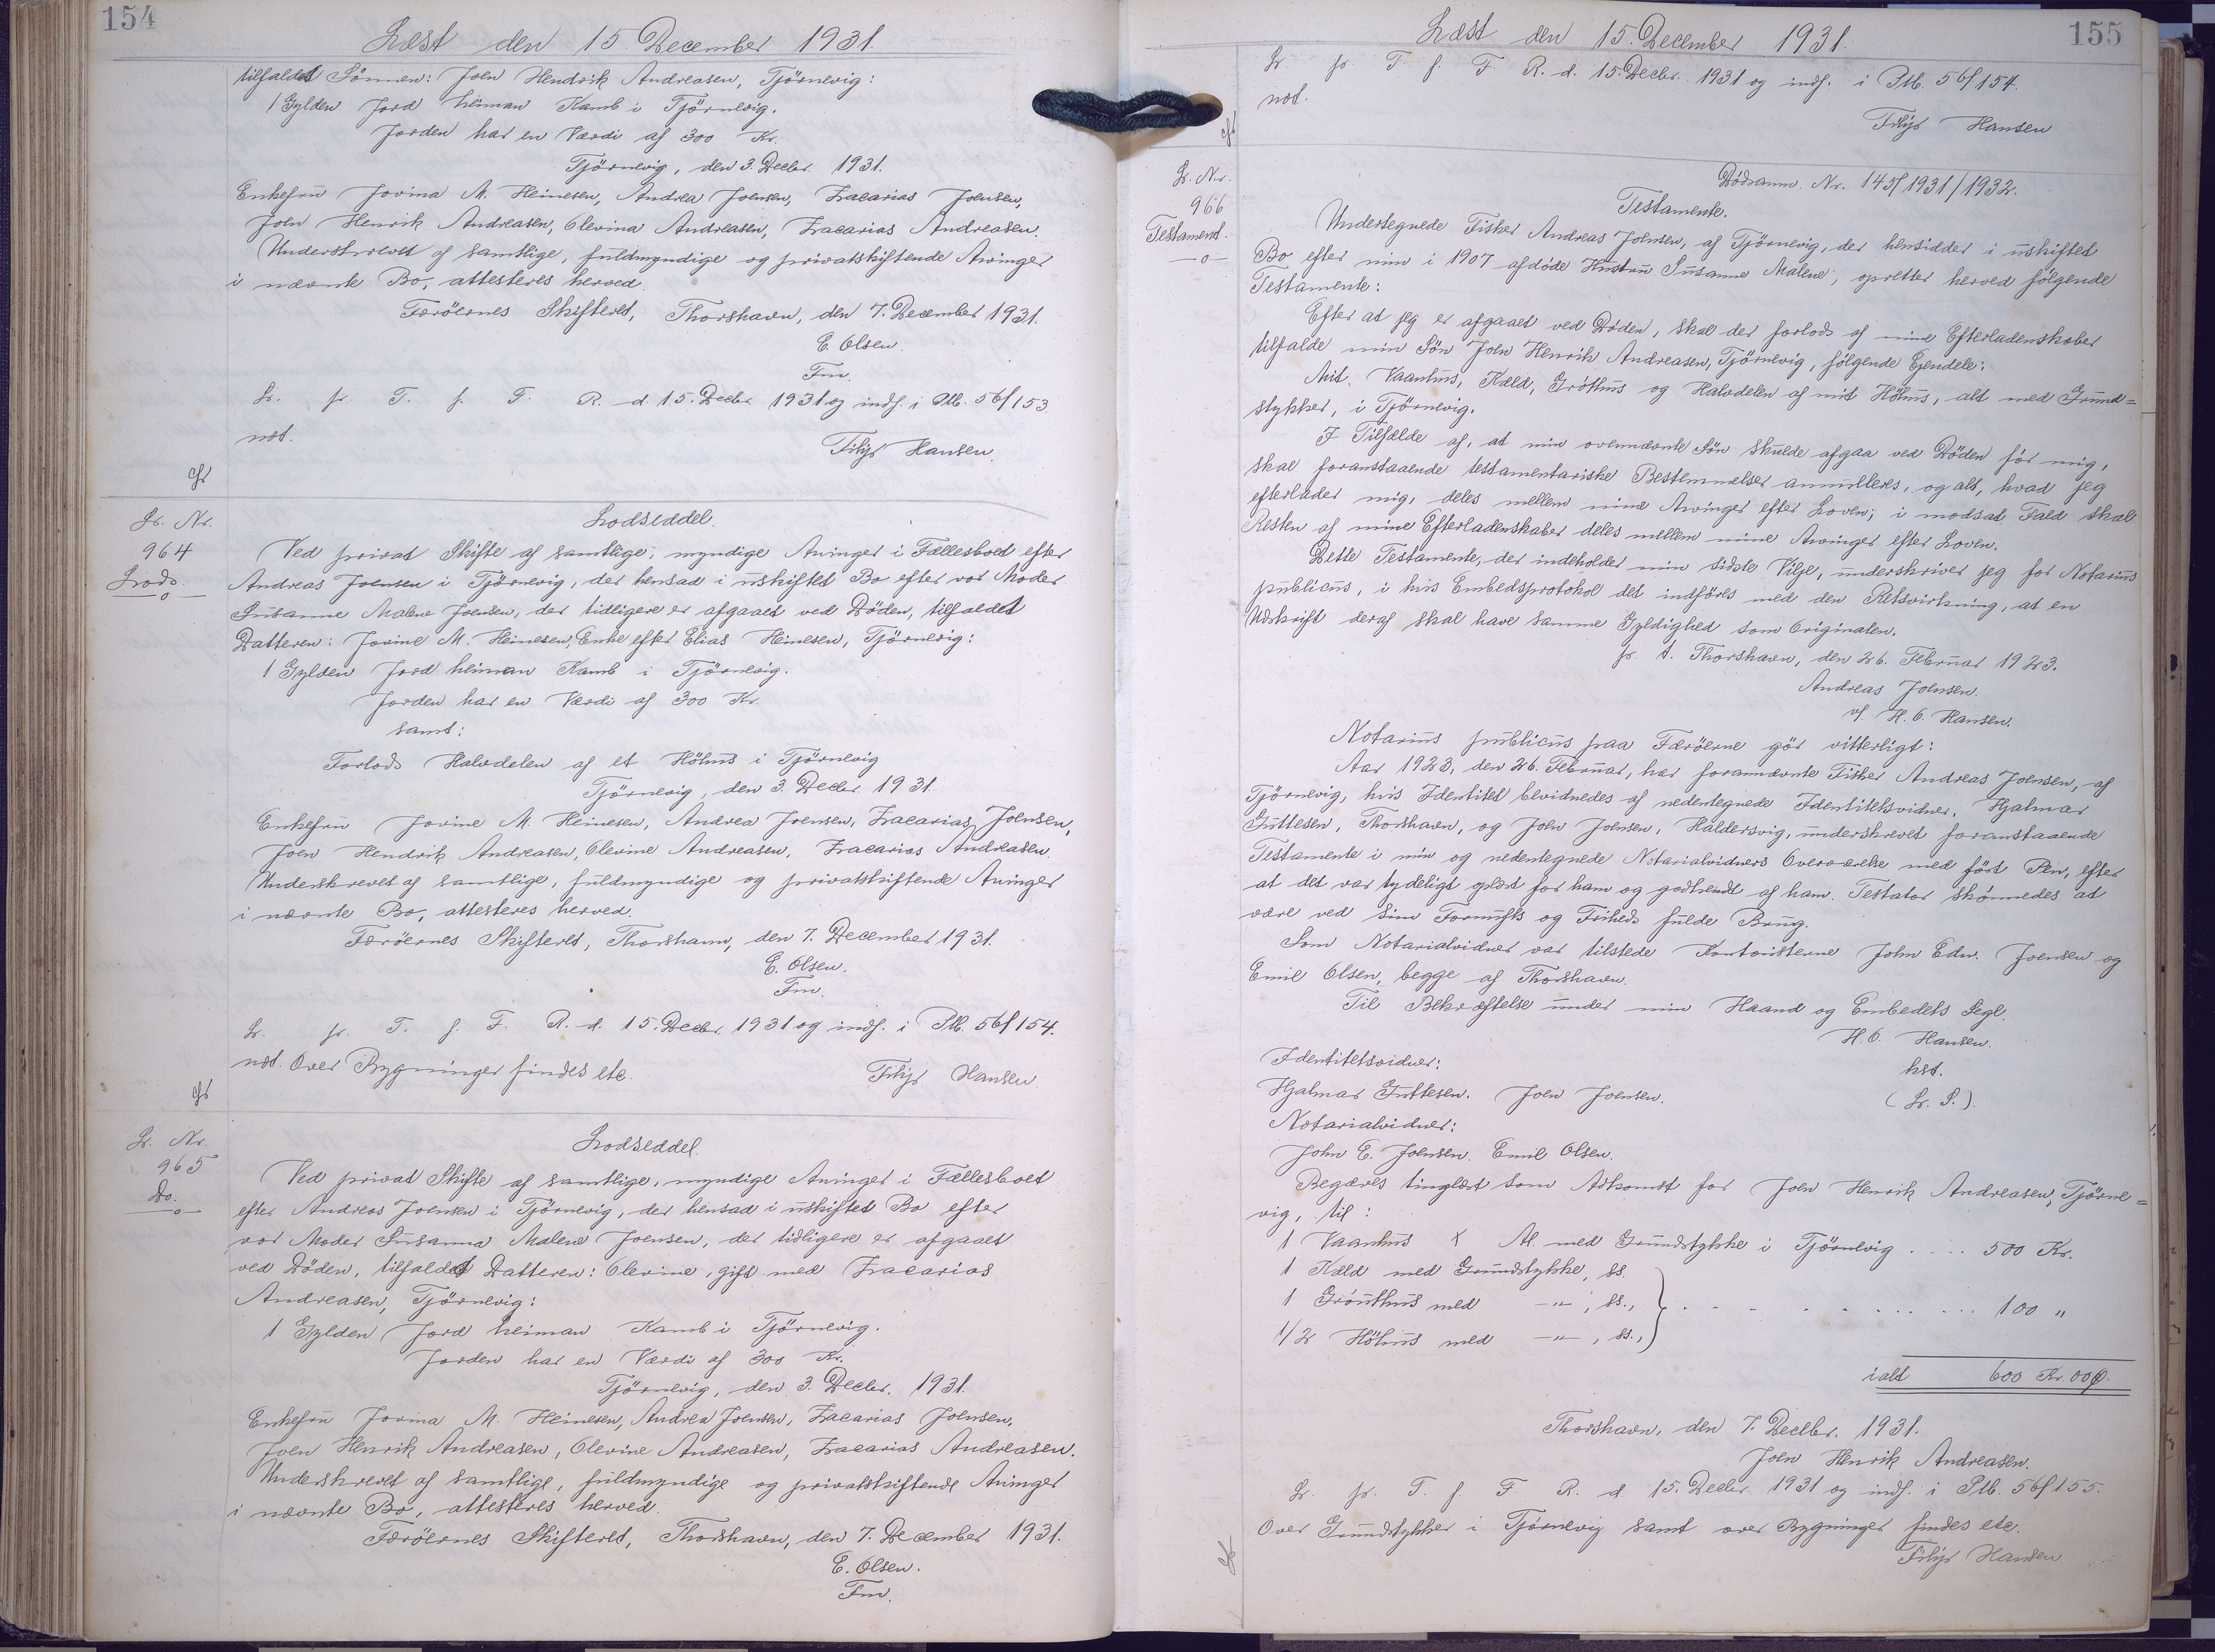 154
Læst den 15. December 1931.
tilfaldet Sønnen: Joen Hendrik Andreasen, Tjörnevig:
1 Gylden Jord heiman Kamb i Tjörnevig.
Jorden har en Værdi af 300 Kr.
Tjörnevig, den 3. Decbr. 1931.
Enkefru Jovina M. Heinesen, Andrea Joensen, Zacarias Joensen,
Joen Henrik Andreasen, Olevina Andreasen, Zacarias Andreasen.
Underskrevet af samtlige, fuldmyndige og privatskiftende Arvinger
i nævnte Bo, attesteres herved.
Færöernes Skifteret, Thorshavn, den 7. December 1931.
E. Olsen.
Fm.
L. fr. T. f. F. R. d. 15. Decbr. 1931 og indf. i Ptb. 56f 153.
not.
Filip Hansen.
cfr
L. Nr.
964
Lods.
—o—
Lodseddel.
Ved privat Skifte af samtlige, myndige Arvinger i Fællesboet efter
Andreas Joensen i Tjörnevig, der hensad i uskiftet Bo efter vor Moder
Susanne Malene Joensen, der tidligere er afgaaet ved Döden, tilfaldet
Datteren: Jovine M. Heinesen, Enke efter Elias Heinesen, Tjörnevig:
1 Gylden Jord heiman Kamb i Tjörnevig.
Jorden har en Værdi af 300 Kr.
samt:
Forlods Halvdelen af et Höhus i Tjörnevig
Tjörnevig, den 3. Decbr. 1931.
Enkefru Jovine M. Heinesen, Andrea Joensen, Zacarias Joensen,
Joen Hendrik Andreasen, Olevine Andreasen, Zacarias Andreasen.
Underskrevet af samtlige, fuldmyndige og privatskiftende Arvinger
i nævnte Bo, attesteres herved.
Færöernes Skifteret, Thorshavn, den 7. December 1931.
E. Olsen.
Fm.
L. fr. T. f. F. R. d. 15. Decbr. 1931 og indf. i Ptb. 56f 154.
not. Over Bygninger findes etc.
Filip Hansen
cfr
L. Nr.
965
Do.
—o—
Lodseddel.
Ved privat Skifte af samtlige, myndige Arvinger i Fællesboet
efter Andreas Joensen i Tjörnevig, der hensad i uskiftet Bo efter
vor Moder Susanna Malene Joensen, der tidligere er afgaaet
ved Döden, tilfaldet Datteren: Olevine, gift med Zacarias
Andreasen, Tjörnevig:
1 Gylden Jord heiman Kamb i Tjörnevig.
Jorden har en Værdi af 300 Kr.
Tjörnevig, den 3. Decbr. 1931.
Enkefru Jovina M. Heinesen, Andrea Joensen, Zacarias Joensen,
Joen Henrik Andreasen, Olevine Andreasen, Zacarias Andreasen.
Underskrevet af samtlige, fuldmyndige og privatskiftende Arvinger
i nævnte Bo, attesteres herved.
Færöernes Skifteret, Thorshavn, den 7. December 1931.
E. Olsen.
Fm.
155
Læst den 15. December 1931.
L. fr. T. f. F. R. d. 15. Decbr. 1931 og indf. i Ptb. 56f 154.
not.
Filip Hansen
cfr
L. Nr.
966
Testament.
—o—
Dödsanm. Nr. 145/1931/1932.
Testamente.
Undertegnede Fisker Andreas Joensen, af Tjörnevig, der hensidder i uskiftet
Bo efter min i 1907 afdöde Hustru Susanne Malene, opretter herved fölgende
Testamente:
Efter at jeg er afgaaet ved Döden, skal der forlods af mine Efterladenskaber
tilfalde min Sön Joen Henrik Andreasen, Tjörnevig, fölgende Ejendele:
Mit Vaanhus, Kæld, Gróthus og Halvdelen af mit Höhus, alt med Grund=
stykker, i Tjörnevig.
I Tilfælde af, at min ovennævnte Sön skulde afgaa ved Döden för mig,
skal foranstaaende testamentariske Bestemmelser annulleres, og alt, hvad jeg
efterlader mig, deles mellem mine Arvinger efter Loven; i modsat Fald skal
Resten af mine Efterladenskaber deles mellem mine Arvinger efter Loven.
Dette Testamente, der indeholder min sidste Vilje, underskriver jeg for Notarius
publicus, i hvis Embedsprotokol det indføres med den Retsvirkning, at en
Udskrift deraf skal have samme Gyldighed som Originalen.
p. t. Thorshavn, den 26. Februar 1923.
Andreas Joensen.
v/. H. O. Hansen.
Notarius publicus paa Færöerne gör vitterligt:
Aar 1923, den 26. Februar, har forannævnte Fisker Andreas Joensen, af
Tjörnevig, hvis Identitet bevidnedes af nedentegnede Identitetsvidner, Hjalmar
Guttesen, Thorshavn, og Joen Joensen, Haldersvig, underskrevet foranstaaende
Testamente i min og nedentegnede Notarialvidners Overværelse med fört Pen, efter
at det var tydeligt oplæst for ham og godkendt af ham. Testator skönnedes at
være ved sin Fornufts og Friheds fulde Brug.
Som Notarialvidner var tilstede Kontoristerne John Edw. Joensen og
Emil Olsen, begge af Thorshavn.
Til Bekræftelse under min Haand og Embedets Segl.
H. O. Hansen.
kst.
(L. S.)
Identitetsvidner:
Hjalmar Guttesen. Joen Joensen.
Notarialvidner:
John E. Joensen. Emil Olsen.
Begæres tinglæst som Adkomst for Joen Henrik Andreasen, Tjörne=
vig, til:
1 Vaanhus × Al. med Grundstykke i Tjörnevig . . . . 500 Kr.
1 Kæld med Grundstykke, ss.
1 Gróuthus med —"—, ss., } . . . . . . . . 100 "
1/2 Höhus med —"—, ss.,
ialt 600 Kr. 00 Ø.
Thorshavn, den 7. Decbr. 1931.
Joen Henrik Andreasen.
L. fr. T. f. F. R. d. 15. Decbr. 1931 og indf. i Ptb. 56f 155.
Over Grundstykker i Tjörnevig samt over Bygninger findes etc.
Filip Hansen
cfr